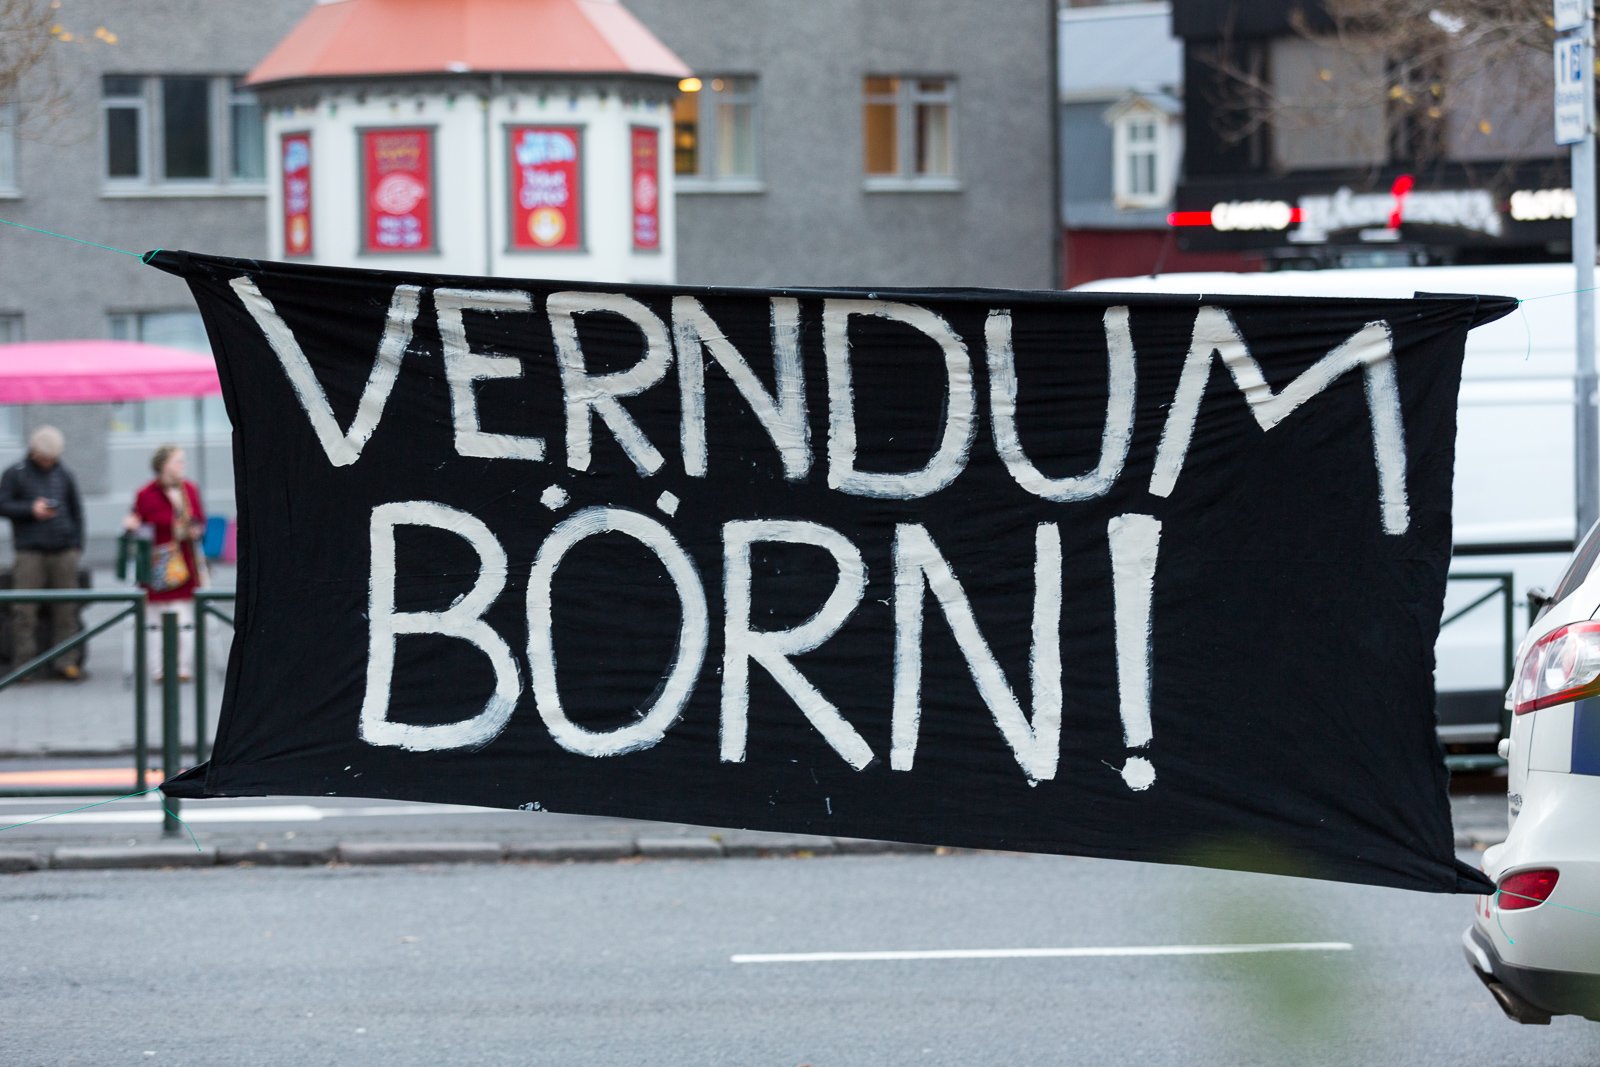 VERNDUM
BÖRN!